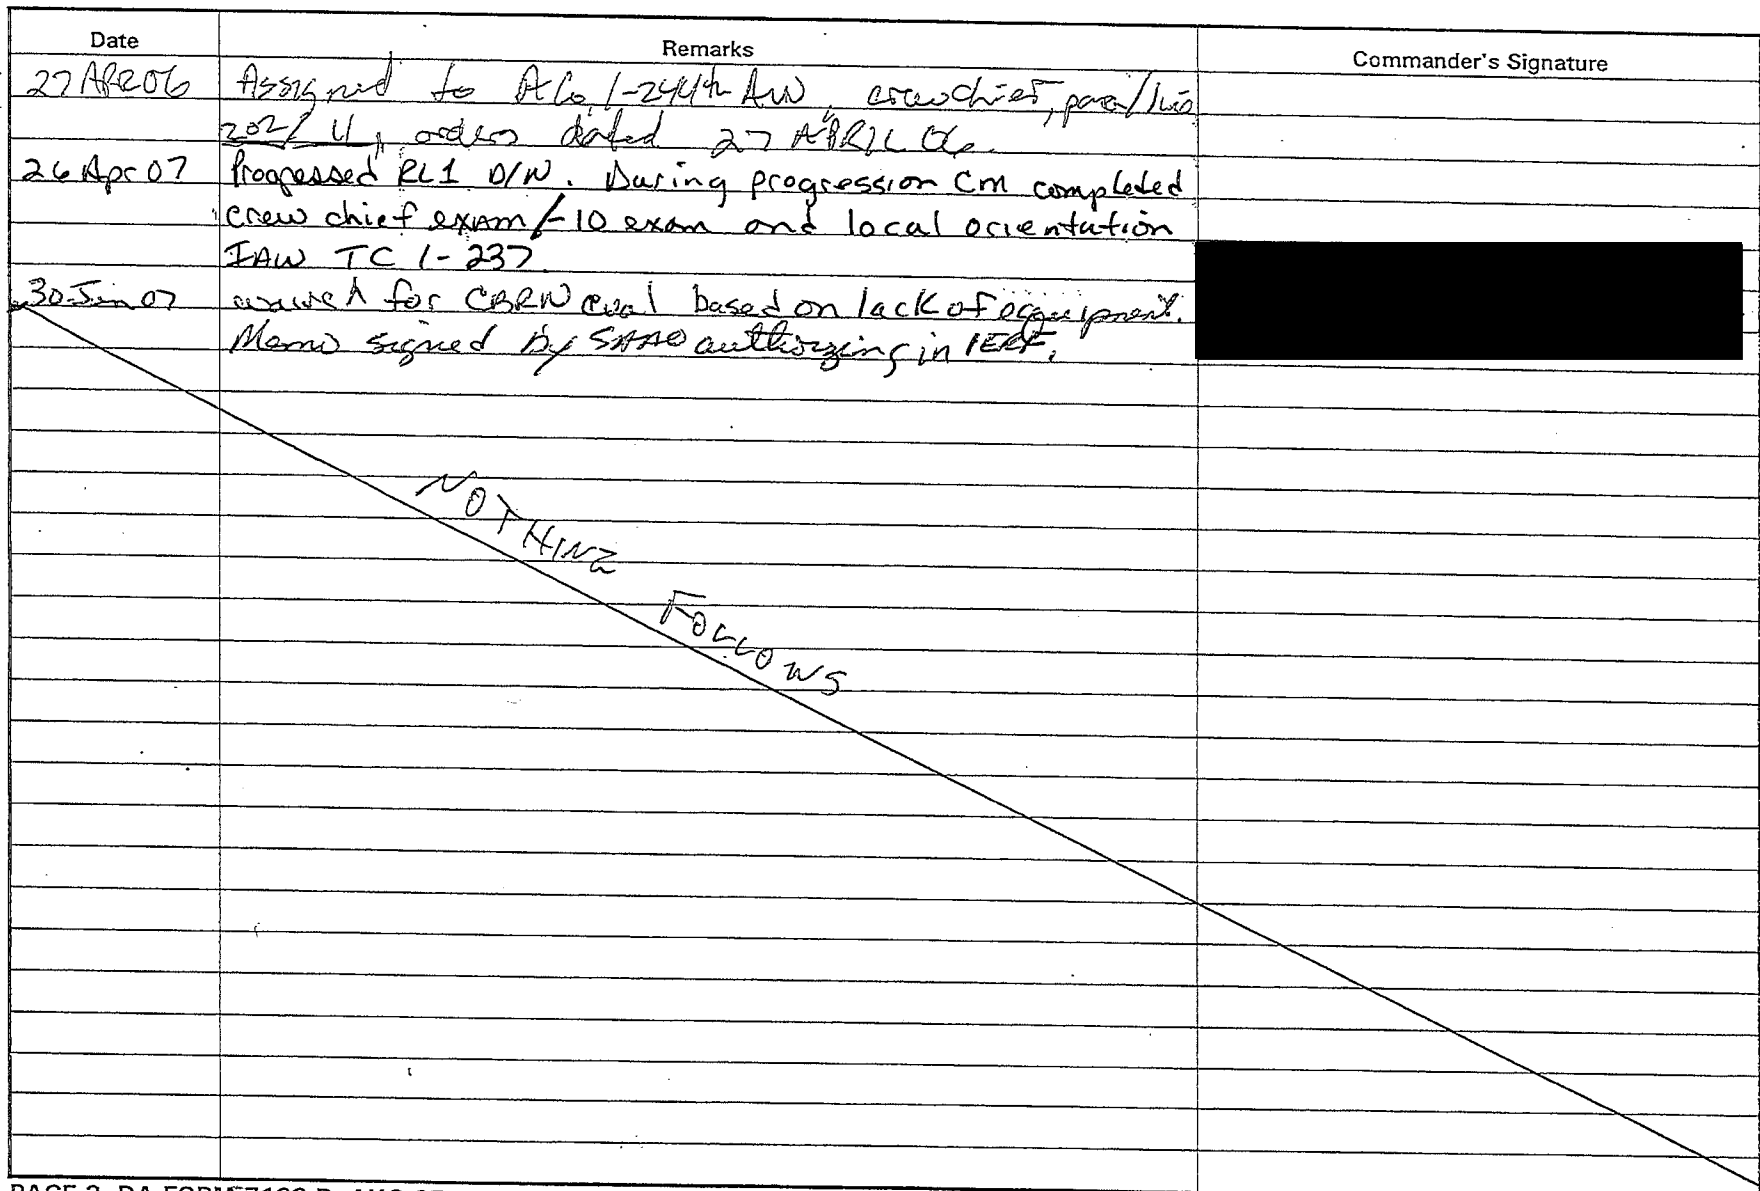 Date Remarks Commander's Signature
27 APR 06 Assigned to A Co, 1-244th AVN, crewchief, para/
202/ orders dated 27 APRIL 06.
26 Apr 07 Progressed RL1 D/N. During progression CM completed
crew chief exam/-10 exam and local orientation
IAW TC 1-237
30 Jun 07 for CBRN eval based on lack of equipment.
Memo signed by SAAO authorizing in IERF.
NOTHING
FOLLOWS